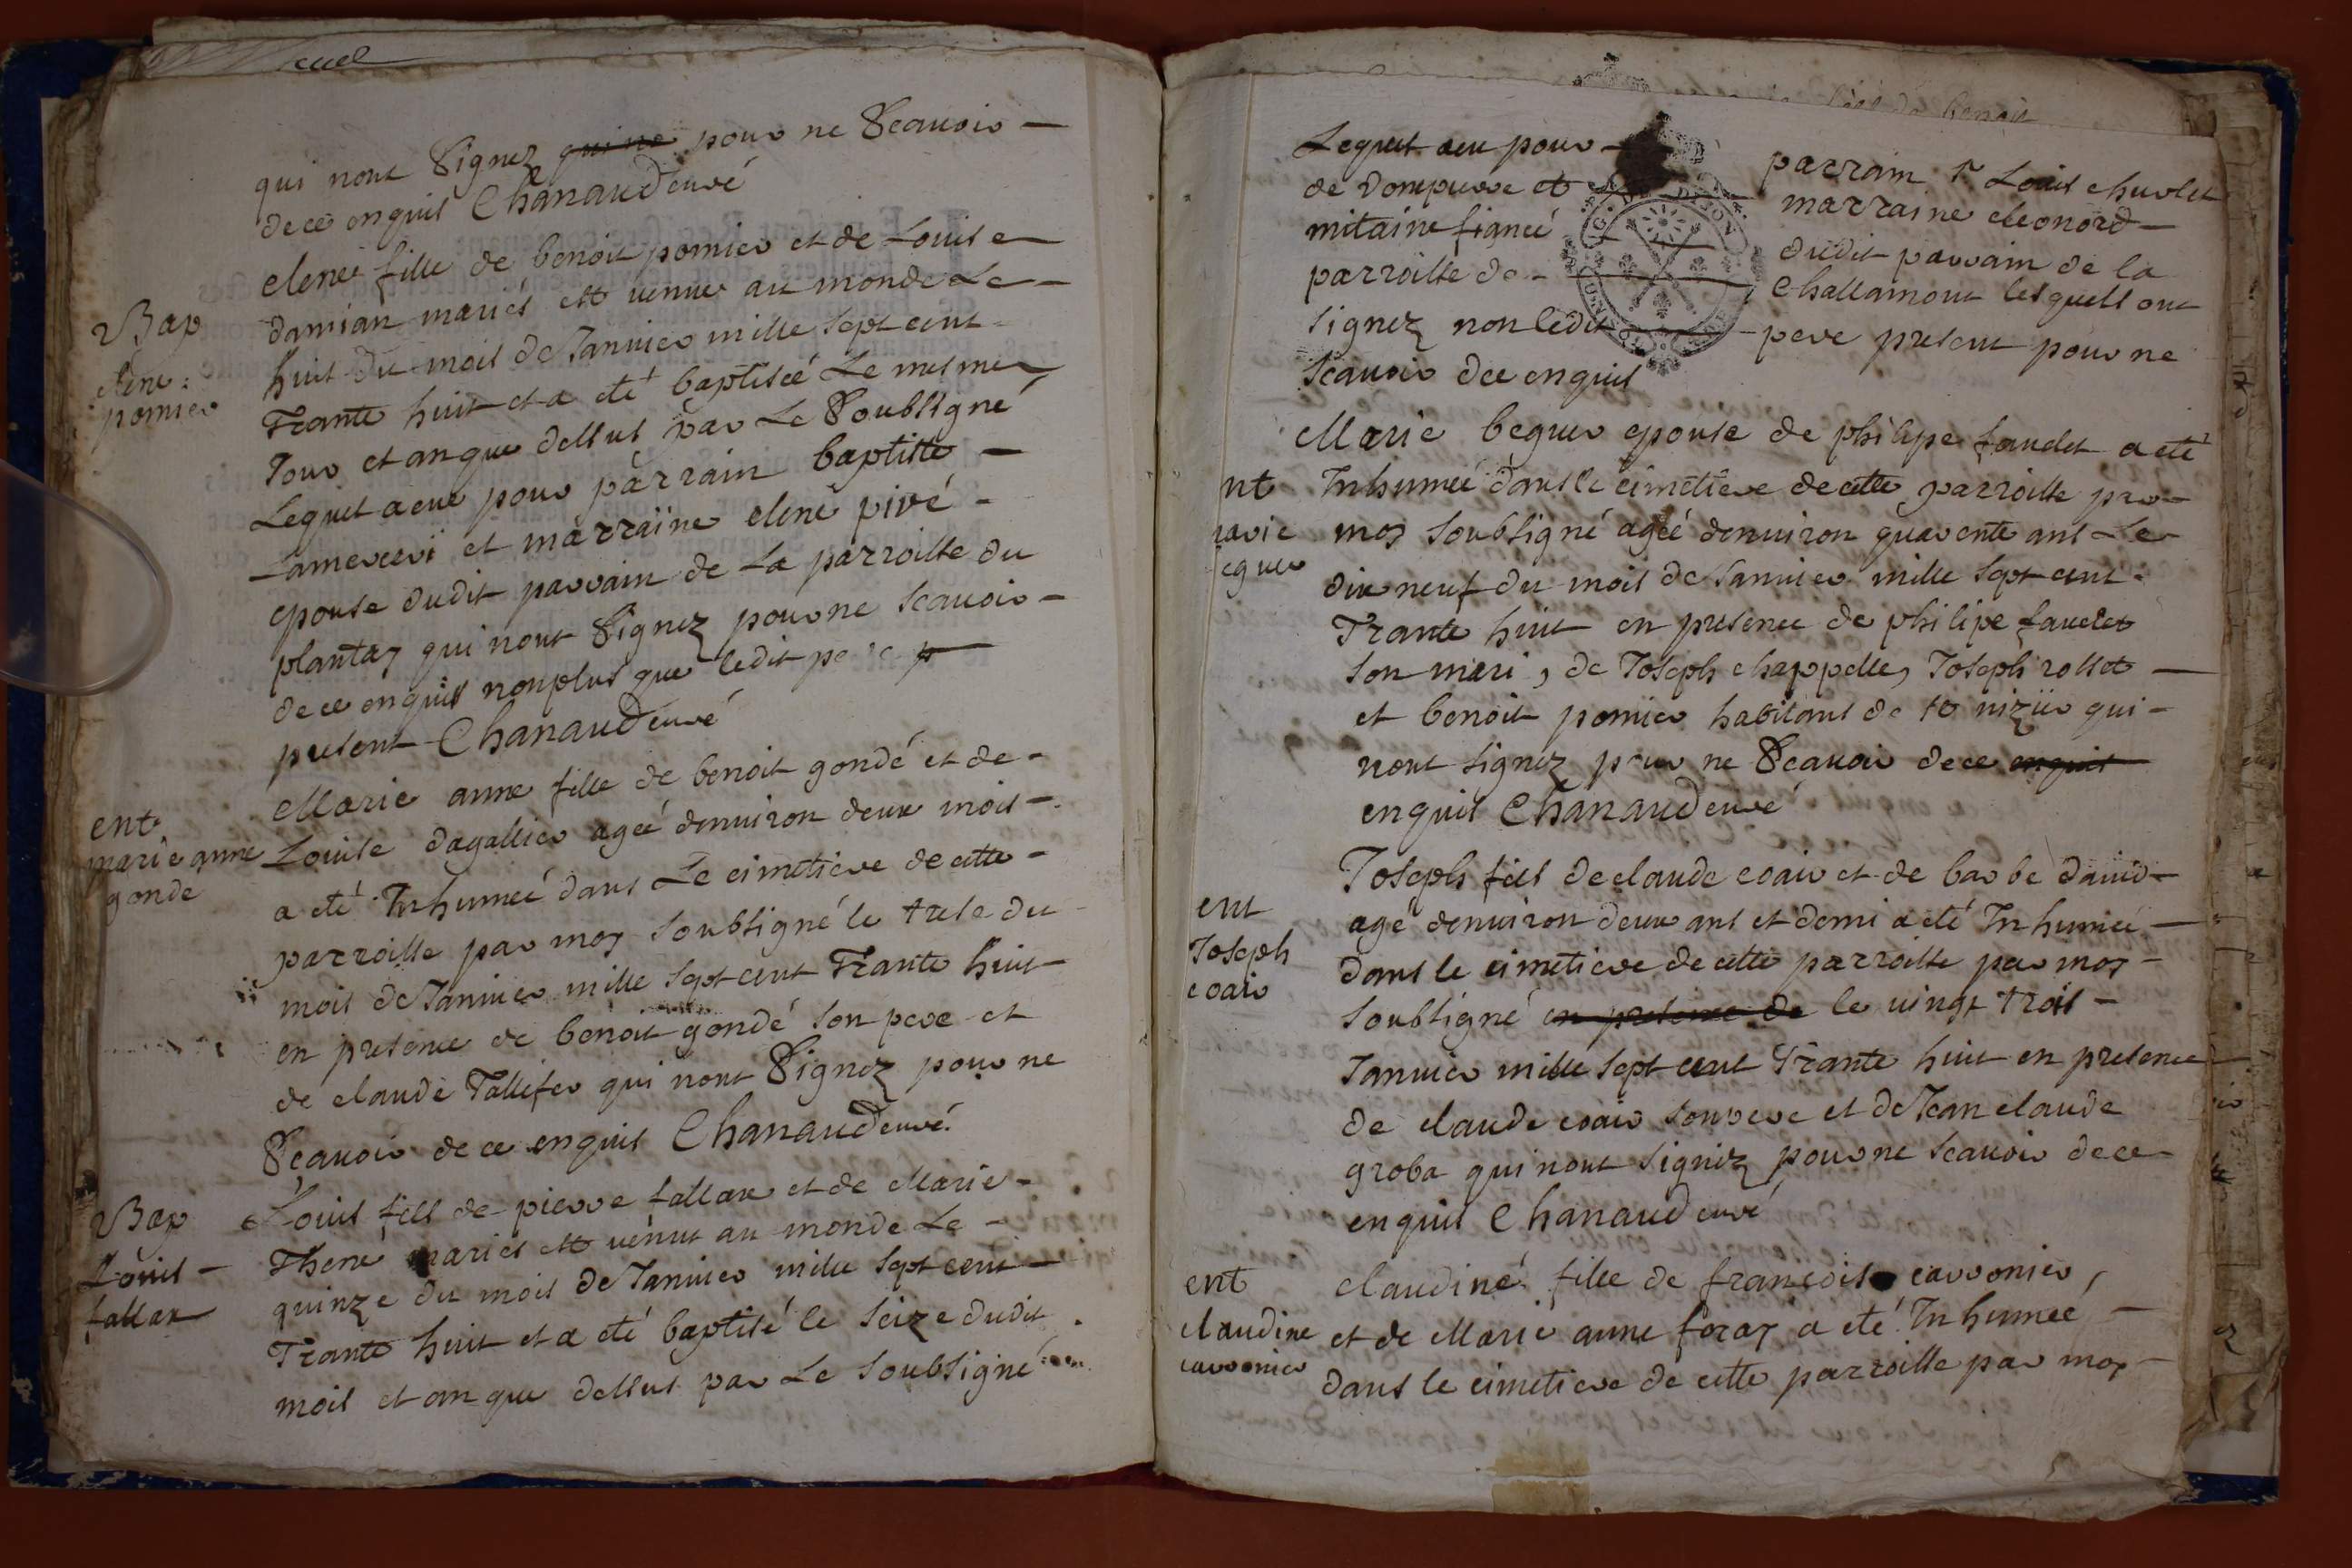 qui nont Signez qui ne pour ne Scauoir
de ce enquis Chanaud curé
Bap
elene
pomier
elene fille de benoit pomier et de Louise
damian mariés est venue au monde Le
huit du mois de Januier mille sept cent
Trante huit et a eté baptiseé Le mesme
Jour et an que dessus par Le Soubsigné
Lequel a eue pour parrain baptiste
Lamercerï et marraine elene pivé
epouse dudit parrain de La parroisse du
plantay qui nont Signez pour ne scauoir
de ce enquis non plus que ledit pere
present Chanaud curé
ent
marie anne
gonde
Marie anne fille de benoit gondé et de
Louise dagallier ageé denuiron deux mois
a eté Inhumeé dans Le cimetiere de cette
parroisse par moy soubsigné le trese du
mois de Januier mille sept cent Trante huit
en presence de benoit gondé son pere et
de claude Tallifer qui nont Signez pour ne
Scauoir de ce enquis Chanaud curé
Bap
Louis
fallax
Louis fils de pierre fallax et de Marie
Thené mariés est venus au monde Le
quinze du mois de Januier mille sept cent
Trante huit et a eté baptisé le seize dudit
mois et an que dessus par Le soubsigné
Lequel aeu pour parrain Sr Louis chuvlet
de dompierre et marraine eleonord
mitaine fianceé dudit parrain de la
parroisse de Challamont lesquels ont
signez non ledit pere present pour ne
scauoir de ce enquis
nt
marie
eguer
Marie beguer epouse de philipe faudet a eté
Inhumeé dans le cimetiere de cette parroisse par
moy soubsigné ageé denuiron quarente ans Le
dix neuf du mois de Januier mille sept cent
Trante huit en presence de philipe faudet
son mari, de Joseph chappelle, Joseph rosset
et benoit pomier habitans de st nizier qui
nont signez pour ne Scauoir de ce enquis
enquis Chanaud curé
ent
Joseph
coair
Joseph fils de claude coair et de barbe dauid
agé denuiron deux ans et demi a eté Inhumeé
dans le cimetiere de cette parroisse par moy
soubsigné en presence de le vingt trois
Januier mille sept cent Trante huit en presence
de claude coair son pere et de Jean claude
groba qui nont signez pour ne scauoir de ce
enquis Chanaud curé
ent
claudine
carronier
claudine fille de francois carronier
et de Marie anne foray a eté Inhumeé
dans le cimetiere de cette parroisse par moy